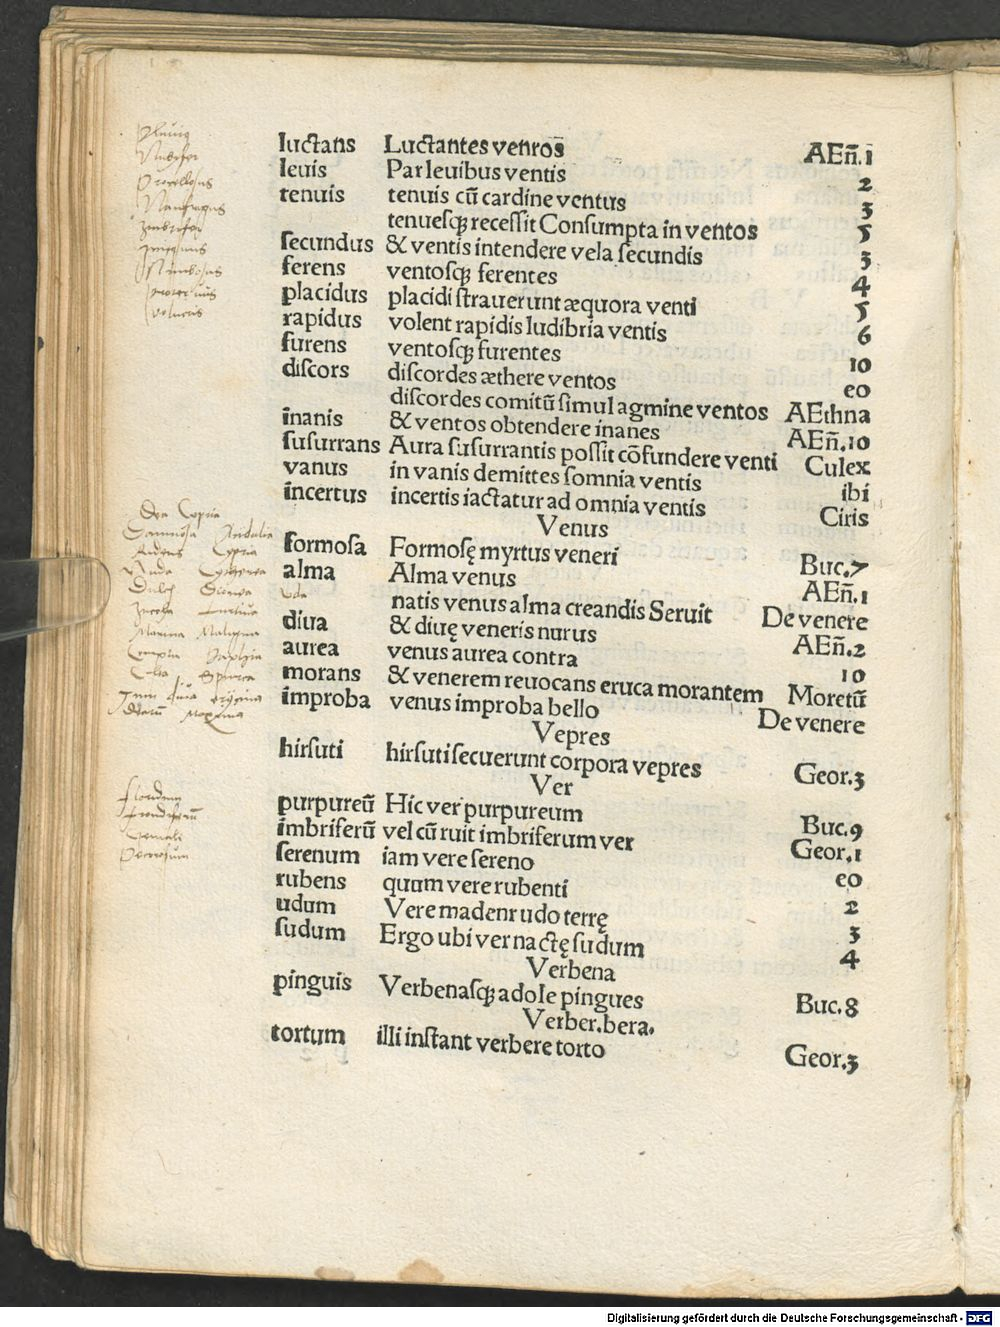 luctans Luctantes venros̄ AEn̄.1
leuis Par leuibus ventis 2
tenuis tenuis cū cardine ventus 3
tenuesqꝫ recessit Consumpta in ventos 5
secundus & ventis intendere vela secundis 3
ferens ventosqꝫ ferentes 4
placidus placidi strauerunt æquora venti 5
rapidus volent rapidis ludibria ventis 6
furens ventosqꝫ furentes 10
discors discordes æthere ventos eo
discordes comitū simul agmine ventos AEthna
inanis & ventos obtendere inanes AEn̄.10
susurrans Aura susurrantis possit cōfundere venti Culex
vanus in vanis demittes somnia ventis ibi
incertus incertis iactatur ad omnia ventis Ciris
Venus
formosa Formosę myrtus veneri Buc.7
alma Alma venus AEn̄.1
natis venus alma creandis Seruit De venere
diua & diuę veneris nurus AEn̄.2
aurea venus aurea contra 10
morans & venerem reuocans eruca morantem Moretū
improba venus improba bello De venere
Vepres
hirsuti hirsuti secuerunt corpora vepres Geor.3
Ver
purpureū Hic ver purpureum Buc.9
imbriferū vel cū ruit imbriferum ver Geor.1
serenum iam vere sereno eo
rubens quam vere rubenti 2
udum Vere madenr udo terrę 3
sudum Ergo ubi ver nactę sudum 4
Verbena
pinguis Verbenasqꝫ adole pingues Buc.8
Verber.bera.
tortum illi instant verbere torto Geor.3
Pluuiq
Nubifer
Procellosus
Naufragus
Imbrifer
Nimbosus
Dea Cypria
Damnosa
Ardens Cypria
Nuda
Dulcis
Marina Maligna
Maxima
Gemale
Digitalisierung gefördert durch die Deutsche Forschungsgemeinschaft - DFG